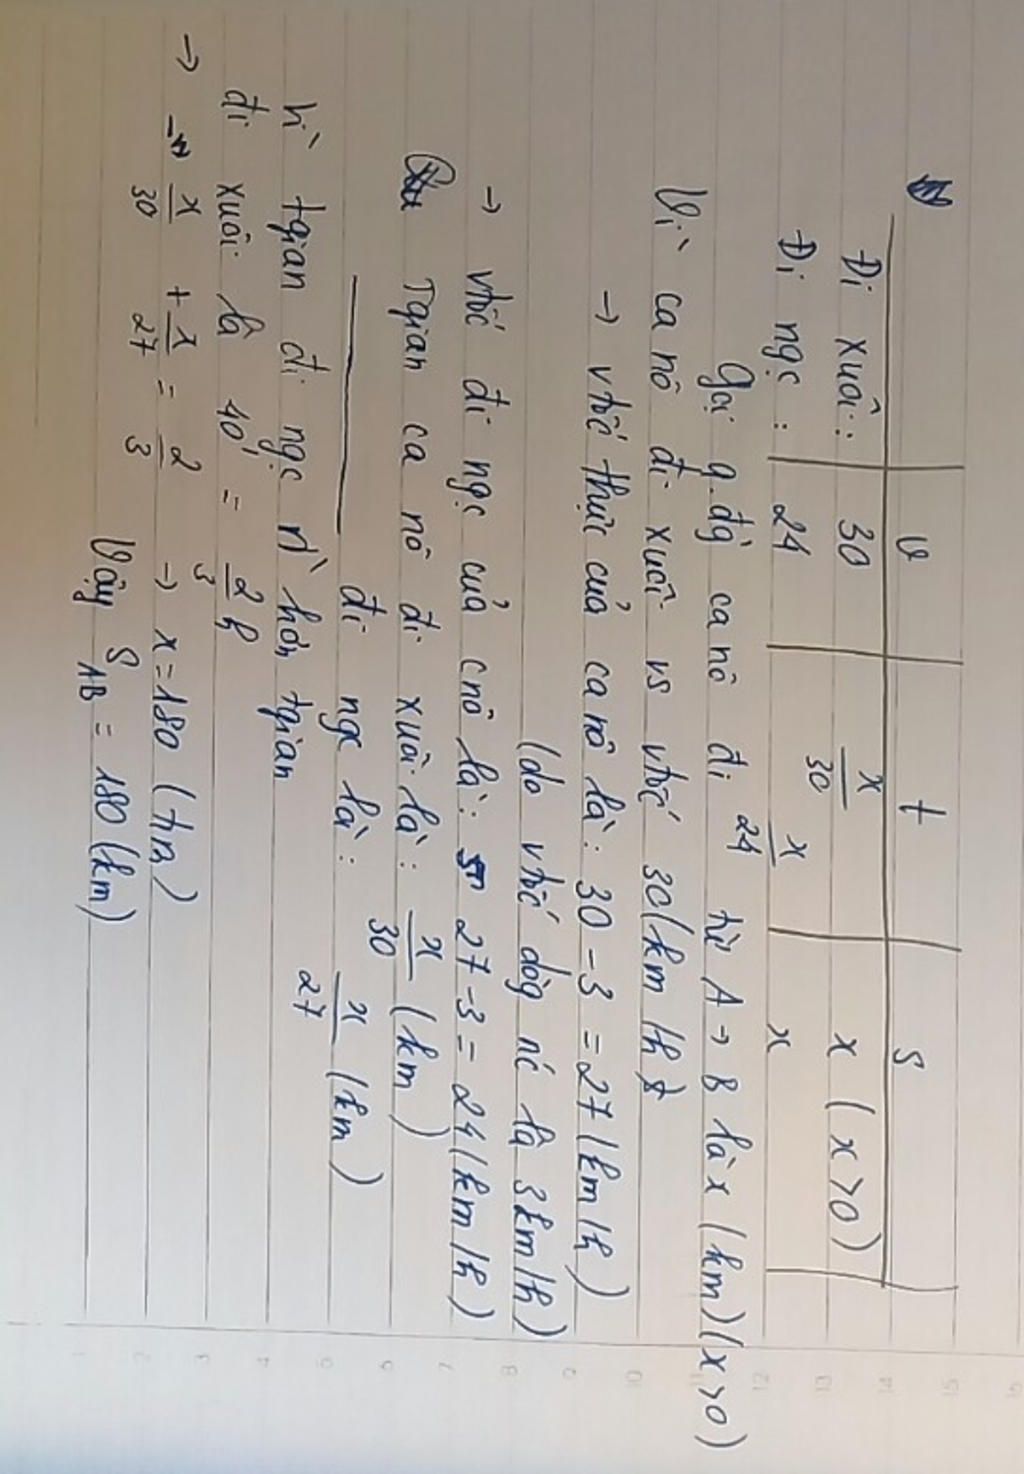 v t S
Đi xuôi: 30 x/30 x (x>0)
Đi ngc: 24 x/24 x
Gọi q.đg ca nô đi từ A → B là x (km) (x>0)
Vì ca nô đi xuôi vs vtốc 30(km/h)
→ vtốc thực của ca nô là: 30 - 3 = 27 (km/h)
(do vtốc dòg nc là 3km/h)
→ vtốc đi ngc của cnô là: 27-3 = 24(km/h)
Tgian ca nô đi xuôi là: x/30 (km)
đi ngc là: x/27 (km)
Vì tgian đi ngc nh` hơn tgian
đi xuôi là 40' = 2/3 h
→ x/30 + x/27 = 2/3 → x = 180 (t/m)
Vậy S AB = 180 (km)
1
2
3
4
5
6
7
8
9
10
11
12
13
14
15
16